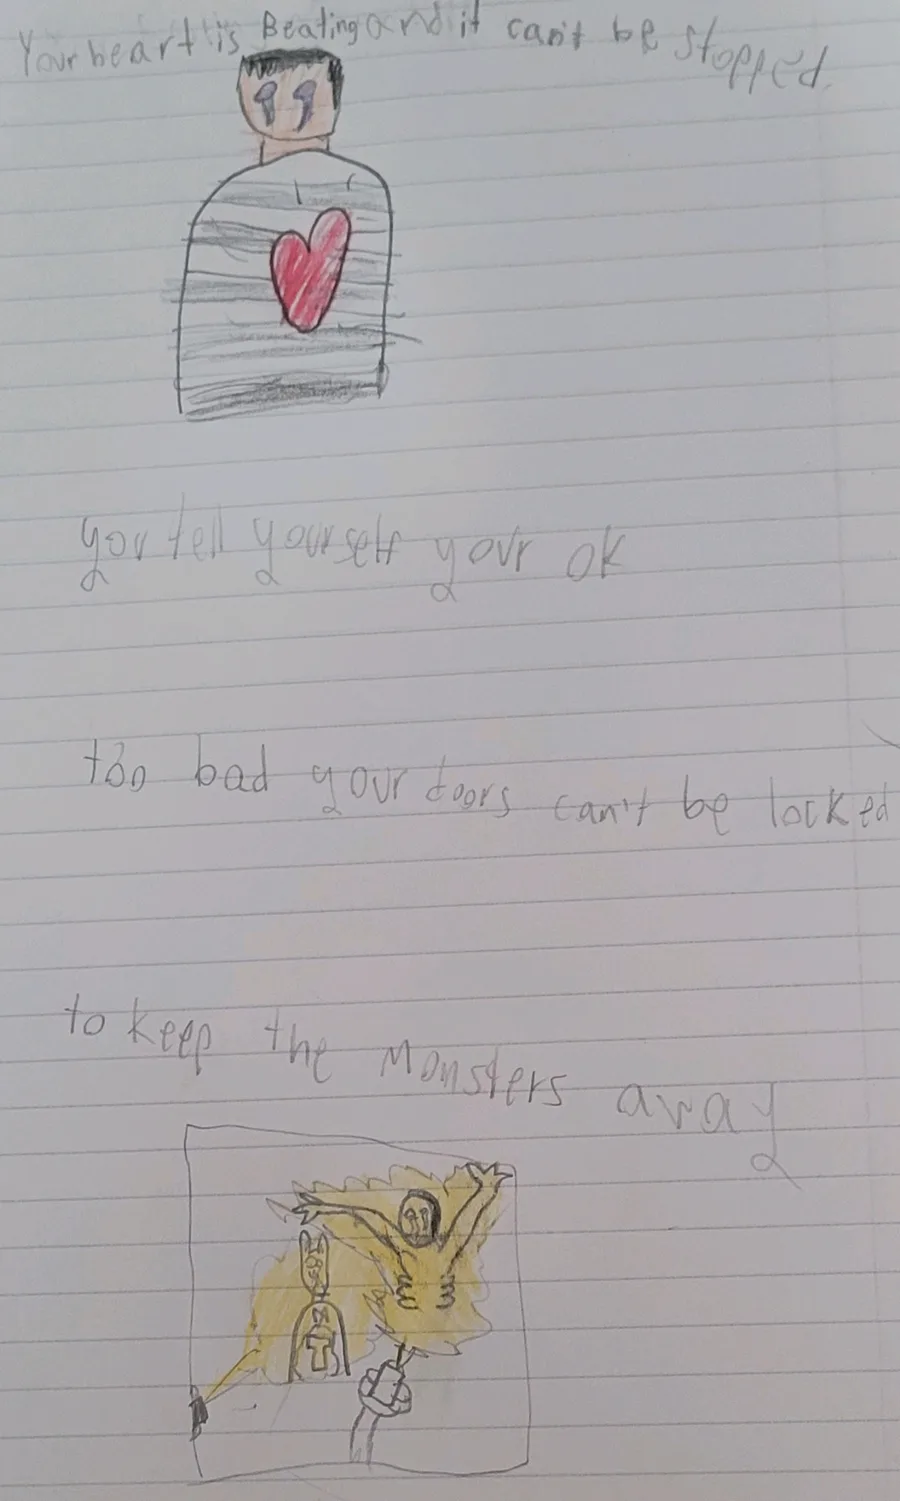 Your heart is Beating and it can't be stopped.
you tell yourself your ok
too bad your doors can't be locked
to keep the Monsters away